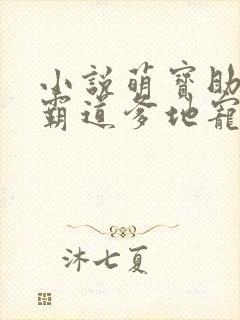 小說萌寶助
霸道爹地寵
沐七夏